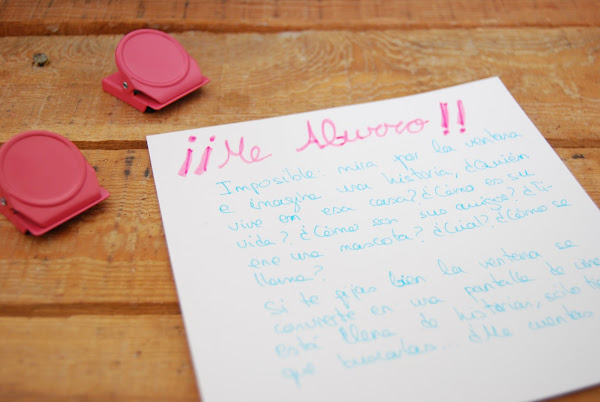 ¡¡Me Aburro!!
Imposible: mira por la ventana
e imagina una historia, ¿Quién
vive en esa casa? ¿Cómo es su
vida? ¿Cómo son sus amigos? ¿Ti-
ene una mascota? ¿Cuál? ¿Cómo se
llama?
Si te fijas bien la ventana se
convierte en una pantalla de cine
está llena de historias, sólo tienes
que buscarlas... ¿Me cuentas